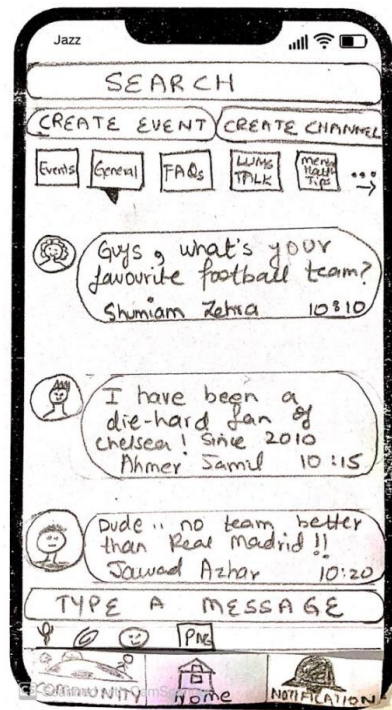 Jazz
SEARCH
CREATE EVENT
CREATE CHANNEL
Events
General
FAQs
LUMS
TALK
Health
Tips
Guys, what's your
favourite football team?
Shumiam Zehra 10:10
I have been a
die-hard fan of
chelsea! Since 2010
Ahmer Jamil 10:15
Dude.. no team better
than Real Madrid!!
Jawad Azhar 10:20
TYPE A MESSAGE
COMMUNITY
Home
NOTIFICATION